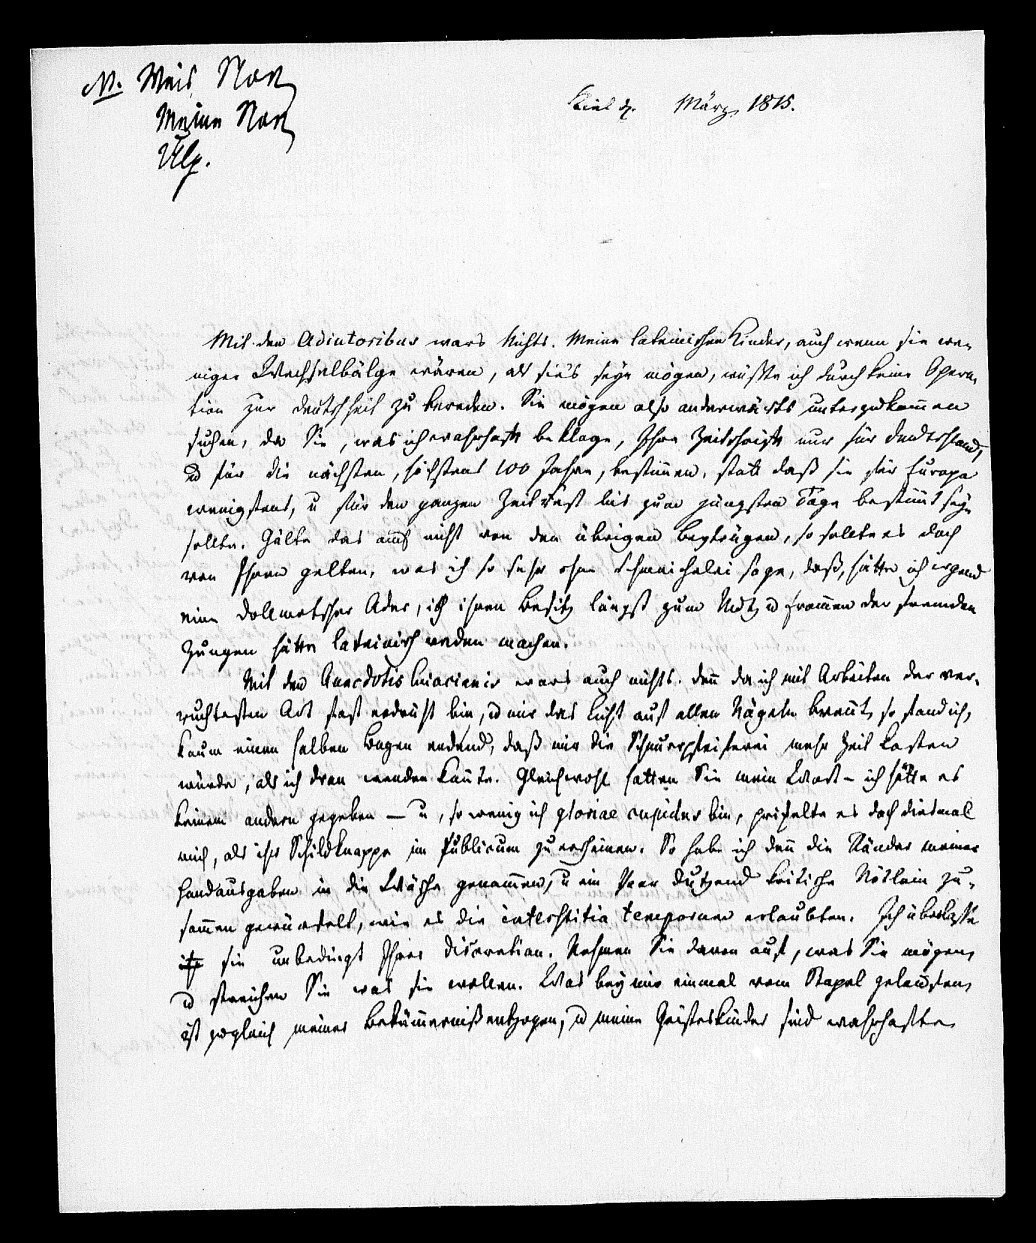 N. Weis Nov
Meine Nov
Ulp.
Kiel d. März 1815.
Mit den Adiutoribus wars Nichts. Meine lateinischen Kinder, auch wenn sie we-
niger Wechselbälge wären, als sie's seyn mögen, wüßte ich durch keine Opera-
tion zur Deutschheit zu bereden. Sie mögen also anderwärts unterzukommen
suchen, da Sie, was ich wahrhaft beklage, Ihre Zeitschrift nur für Deutschland,
u für die nächsten, höchstens 100 Jahre, bestimmen, statt daß sie für Europa
wenigstens, u für den ganzen Zeitrest bis zum jüngsten Tage bestimmt seyn
sollte. Gälte das auch nicht von den übrigen Beyträgen, so sollte es doch
von Ihren gelten, was ich so sehr ohne Schmeichelei sage, daß, hätte ich irgend
eine Dollmetscher Ader, ich ihren Besitz längst zum Nutz u frommen der fremden
Zungen hätte lateinisch reden machen.
Mit den Anecdotis wars auch nichts. denn da ich mit Arbeiten der ver-
ruchtesten Art fast erdrückt bin, u mir das Licht auf allen Nägeln brennt, so fand ich,
kaum einen halben Bogen endend, daß mir die Schnurrpfeiferei mehr Zeit kosten
würde, als ich dran wenden könnte. Gleichwohl hatten Sie mein Wort – ich hätte es
keinem andern gegeben — u, so wenig ich gloriae cupidus bin, prickelte es doch diesmal
mich, als ihr Schildknappe im Publicum zu erscheinen. So habe ich denn die Ränder meiner
Handausgaben in die Wäsche genommen, u ein Paar Dutzend kritische Nötlein zu-
sammen gewürfelt, wie es die interstitia temporum erlaubten. Ich überlasse
sie unbedingt Ihrer Discretion. Nehmen Sie davon auf, was Sie mögen,
u streichen Sie was sie wollen. Was bey mir einmal vom Stapel gelaufen,
ist zugleich meiner Bekümmerniß entzogen, u meine Geisteskinder sind wahrhafte